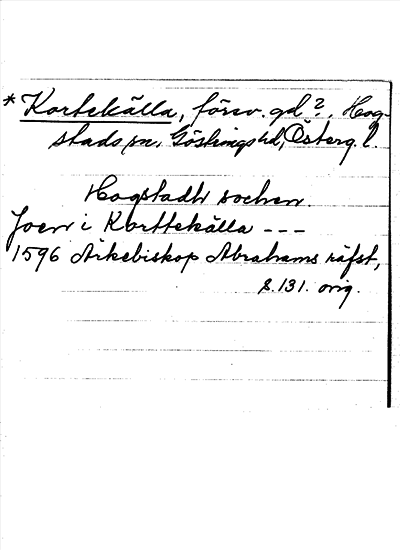 * Kortekälla, försv. gd?, Hog-
stads sn, Göstrings hd, Österg. l.
Hogstadh sochen.
Joen i Korttekälla - - -
1596 Ärkebiskop Abrahams räfst,
s. 131. orig.